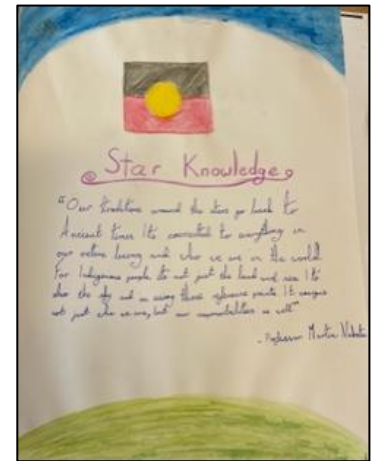 Star Knowledge
"Our traditions around the stars go back to
Ancient times Its connected to everything in
our culture being and who we are in the world
For Indigenous people its not just the land and sea Its
also the sky and in using those reference points It
not just who we are, but our responsibilities as well"
- Professor Martin Nakata